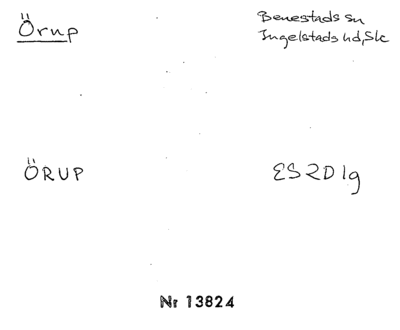 Örup
Benestads sn
Ingelstads hd, Sk
ÖRUP
ES2D1g
Nr 13824